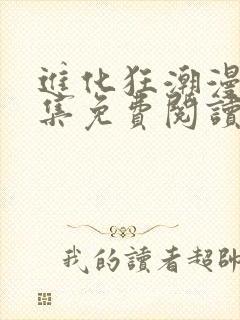 進化狂潮漫
集免費閱讀
我的讀者超帥